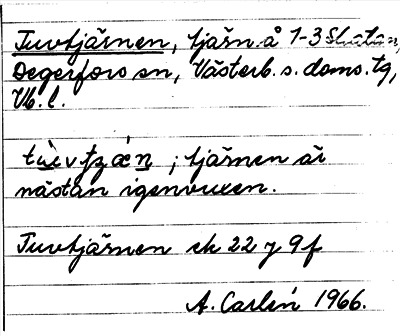 Tuvtjärnen, tjärn å 1-3
Degerfors sn, Västerb. s. doms. tg,
Vb. l.
; tjärnen är
nästan igenvuxen.
Tuvtjärnen ek 22 y 9 f
A. Carlén 1966.